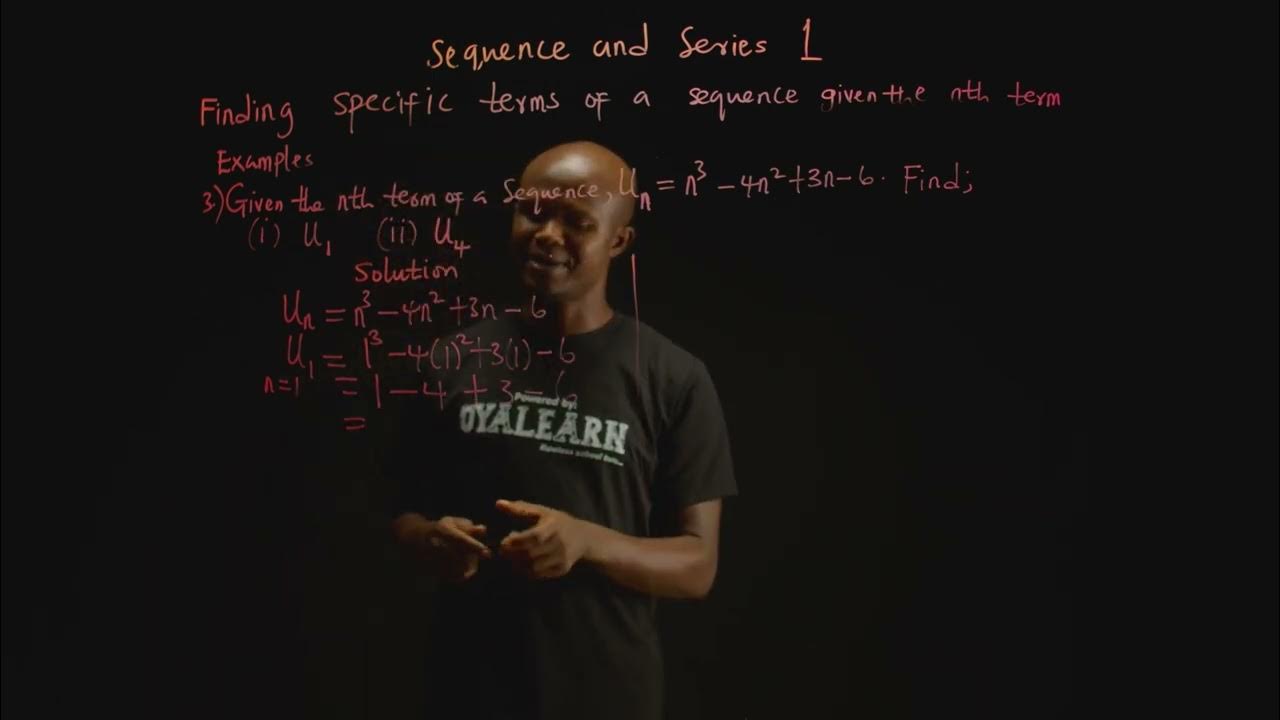 Sequence and Series 1
Finding specific terms of a sequence given the nth term
Examples
3) Given the nth term of a Sequence, Uₙ = n³ - 4n² + 3n - 6. Find;
(i) U₁ (ii) U₄
Solution
Uₙ = n³ - 4n² + 3n - 6
U₁ = 1³ - 4(1)² + 3(1) - 6
n=1 = 1 - 4 + 3 - 6
=
Powered by:
OYALEARN